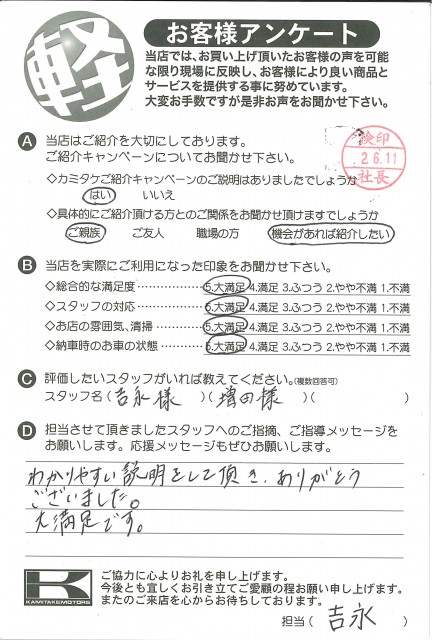 軽
お客様アンケート
当店では、お買い上げ頂いたお客様の声を可能
な限り現場に反映し、お客様により良い商品と
サービスを提供する事に努めています。
大変お手数ですが是非お声をお聞かせ下さい。
A 当店はご紹介を大切にしております。
ご紹介キャンペーンについてお聞かせ下さい。
検印
26.11
社長
◇カミタケご紹介キャンペーンのご説明はありましたでしょうか
はい いいえ
◇具体的にご紹介頂ける方とのご関係をお聞かせ頂けますでしょうか
ご親族 ご友人 職場の方 機会があれば紹介したい
B 当店を実際にご利用になった印象をお聞かせ下さい。
◇総合的な満足度………………5.大満足 4.満足 3.ふつう 2.やや不満 1.不満
◇スタッフの対応………………5.大満足 4.満足 3.ふつう 2.やや不満 1.不満
◇お店の雰囲気、清掃…………5.大満足 4.満足 3.ふつう 2.やや不満 1.不満
◇納車時のお車の状態…………5.大満足 4.満足 3.ふつう 2.やや不満 1.不満
C 評価したいスタッフがいれば教えてください。(複数回答可)
スタッフ名(吉永様)(増田様)( )
D 担当させて頂きましたスタッフへのご指摘、ご指導メッセージを
お願いします。応援メッセージもぜひお願いします。
わかりやすい説明をして頂き、ありがとう
ございました。
大満足です。
K
KAMITAKEMOTORS
ご協力に心よりお礼を申し上げます。
今後とも宜しくお引き立てご愛顧の程お願い申し上げます。
またのご来店を心からお待ちしております。
担当(吉永)